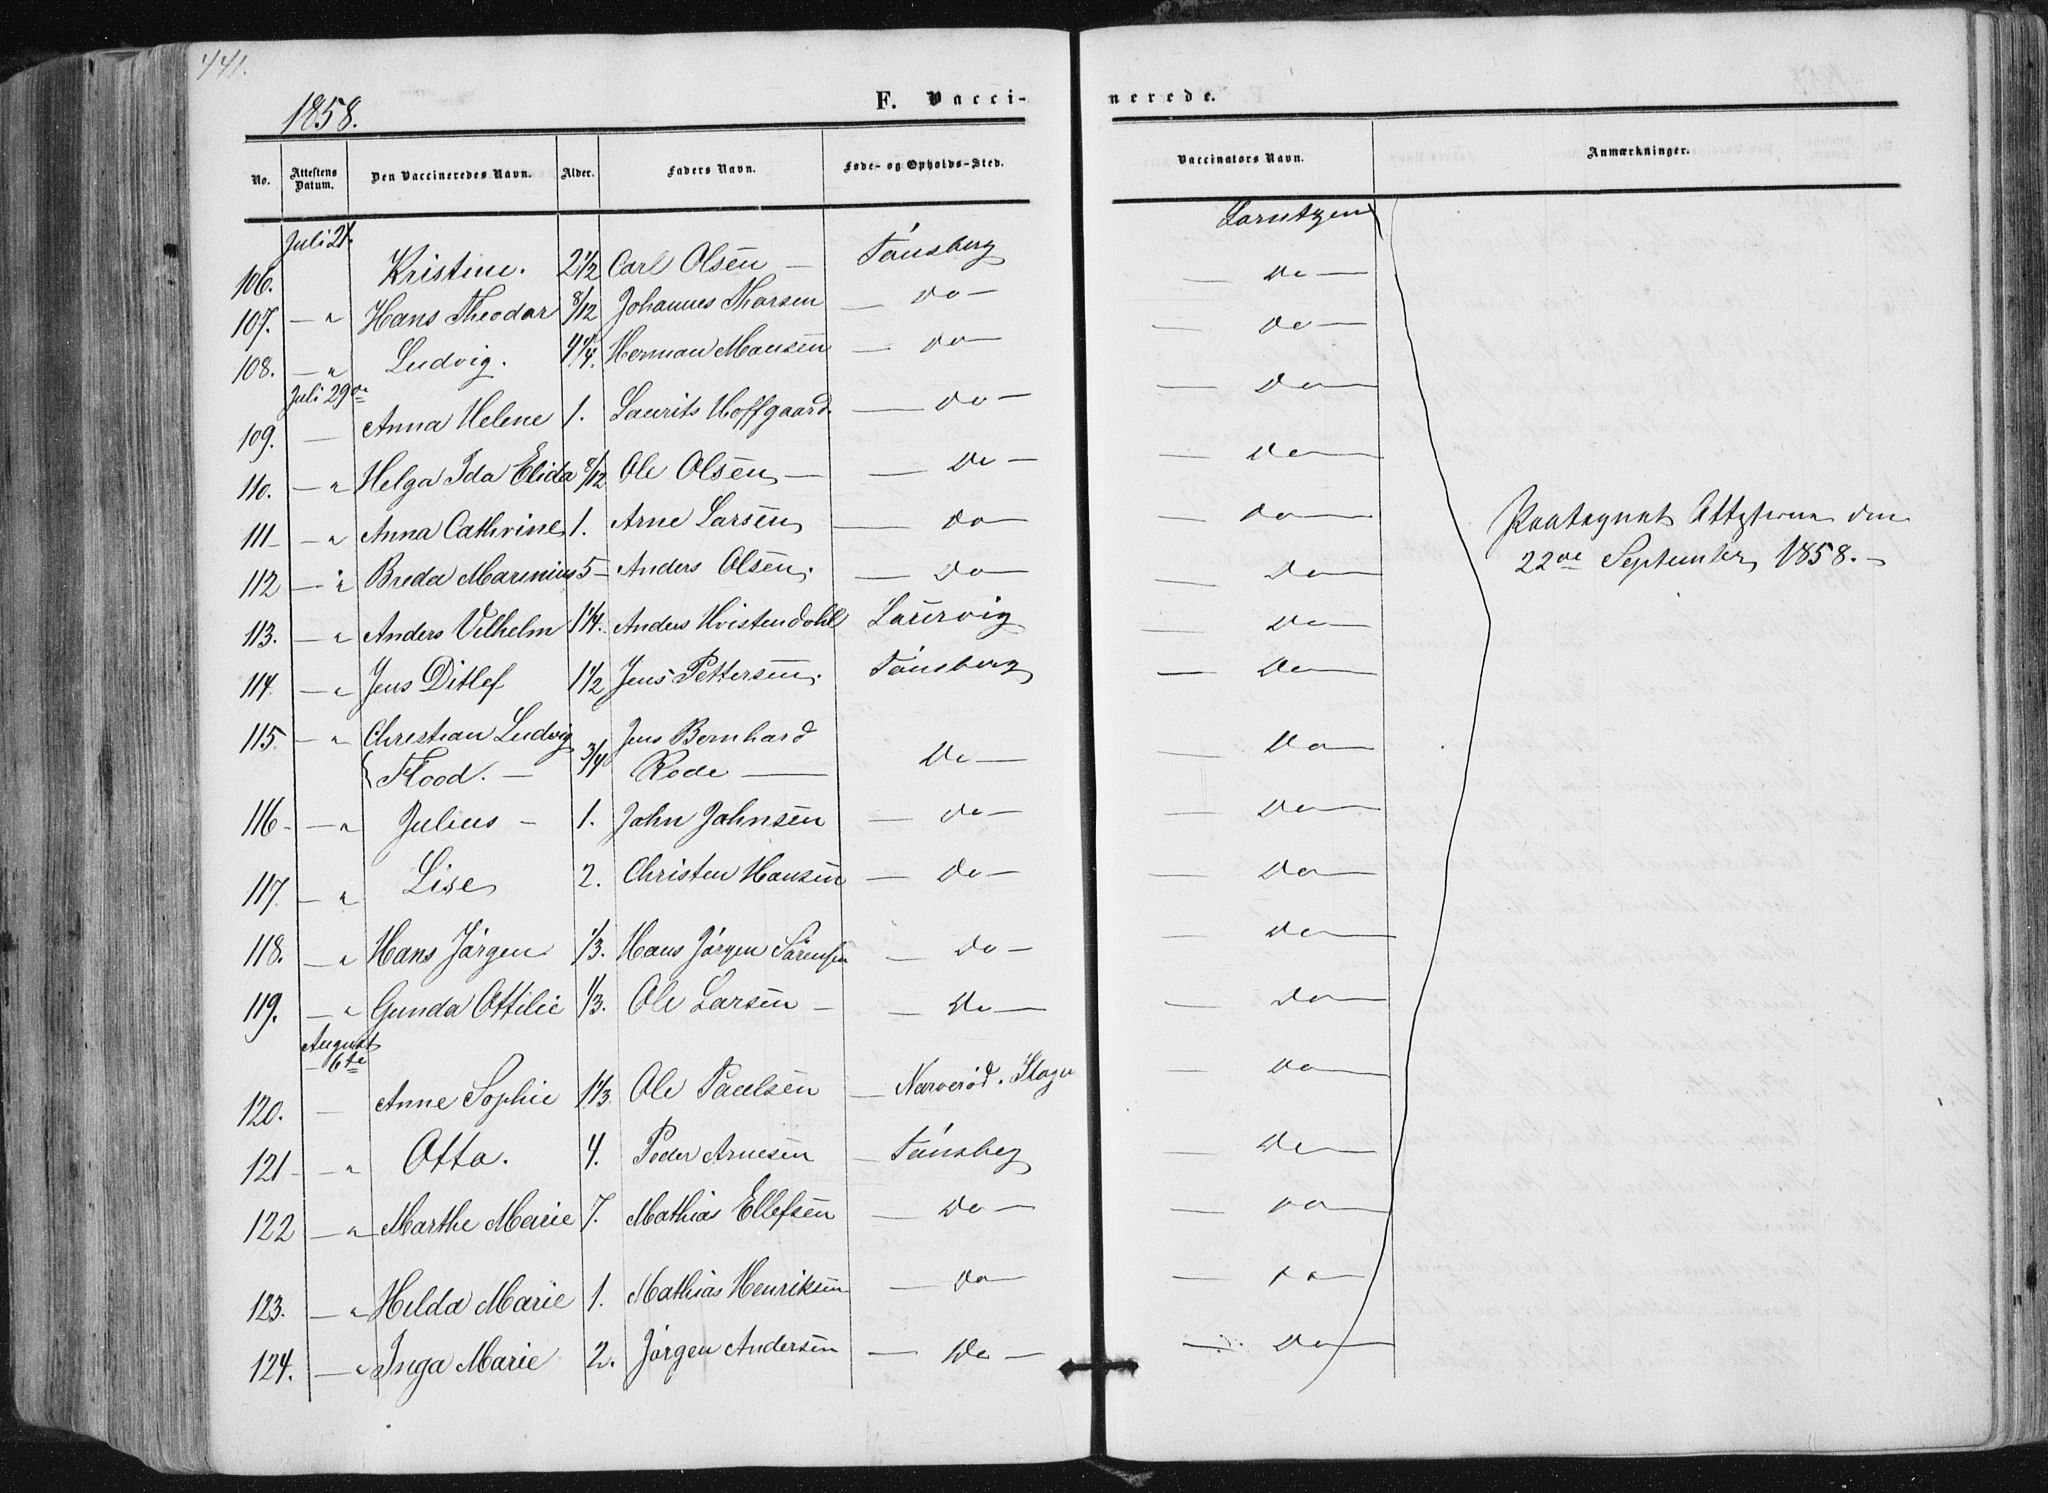 441.
1858.
F. Vacci-
nerede.
No. Attestens Datum. Den Vaccineredes Navn. Alder. Faders Navn. Føde- og Opholds-Sted. Vaccinators Navn. Anmærkninger.
Juli 21. Lorntzen
106. Kristine. 2 1/2 Carl Olsen — Tönsberg — Do —
107. — " Hans Theodor 8/12 Johannes Thorsen — Do — — Do —
108. — " Ludvig. 4 1/4. Herman Monsen — Do — — Do —
Juli 29de
109. — Anna Helene 1. Laurits Hoffgaard. — Do — — Do —
110. — " Helga Ida Elida 8/12 Ole Olsen — — Do — — Do —
111 — " Anna Cathrine 1. Arne Larsen — Do — — Do — Attesterne den
112 — " Breda Marinius 5 — Anders Olsen. — Do — — Do — 22de September 1858. —
113. — " Anders Vilhelm 1 1/4. Anders Hvistendahl Laurvig — Do —
114. — " Jens Ditlef 1 1/2 Jens Pettersen. Tönsberg — Do —
115. — " Christian Ludvig Jens Bernhard — Do —
Flood. — 3/4 Rode — Do —
116 — — " Julius — 1. John Johnsen — Do — — Do —
117. — " Lise 2. Christen Hansen — Do — — Do —
118. — " Hans Jörgen 1/3. Hans Jörgen Sörensen — Do — — Do —
119. — " Gunda Ottilie 1/3. Ole Larsen — — Do — — Do —
August
— 6te
120. — Anne Sophie 1 1/3. Ole Paulsen — Narveröd. Slagn — Do —
121 — — " Otto. 4. Peder Arnesen — Tönsberg — Do —
122 — " Marthe Marie 7. Mathias Ellefsen — Do — — Do —
123. — " Hilda Marie 1. Mathias Henriksen — Do — — Do —
124. — " Inga Marie 2. Jörgen Andersen — Do — — Do —